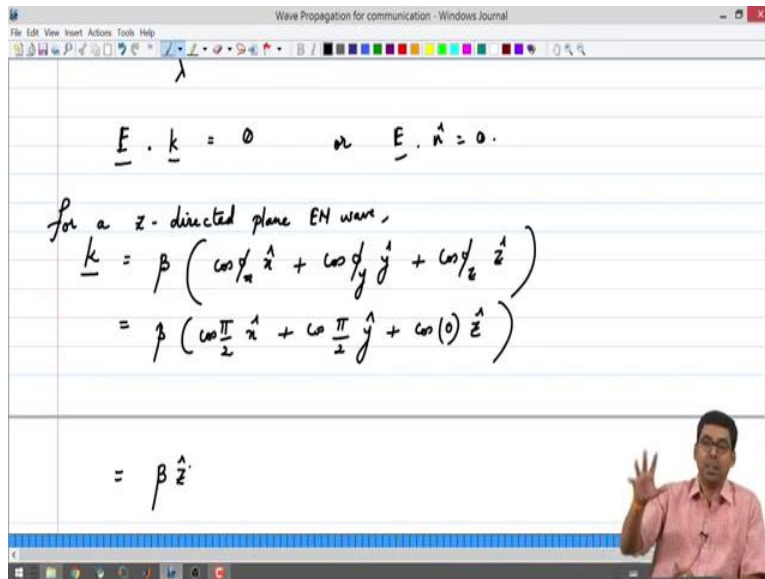 Wave Propagation for communication - Windows Journal
File Edit View Insert Actions Tools Help
B I
λ
E . k = 0 or E . n̂ = 0.
for a z - directed plane EM wave,
k = β ( cos φx x̂ + cos φy ŷ + cos φz ẑ )
= β ( cos π/2 x̂ + cos π/2 ŷ + cos (0) ẑ )
= β ẑ.